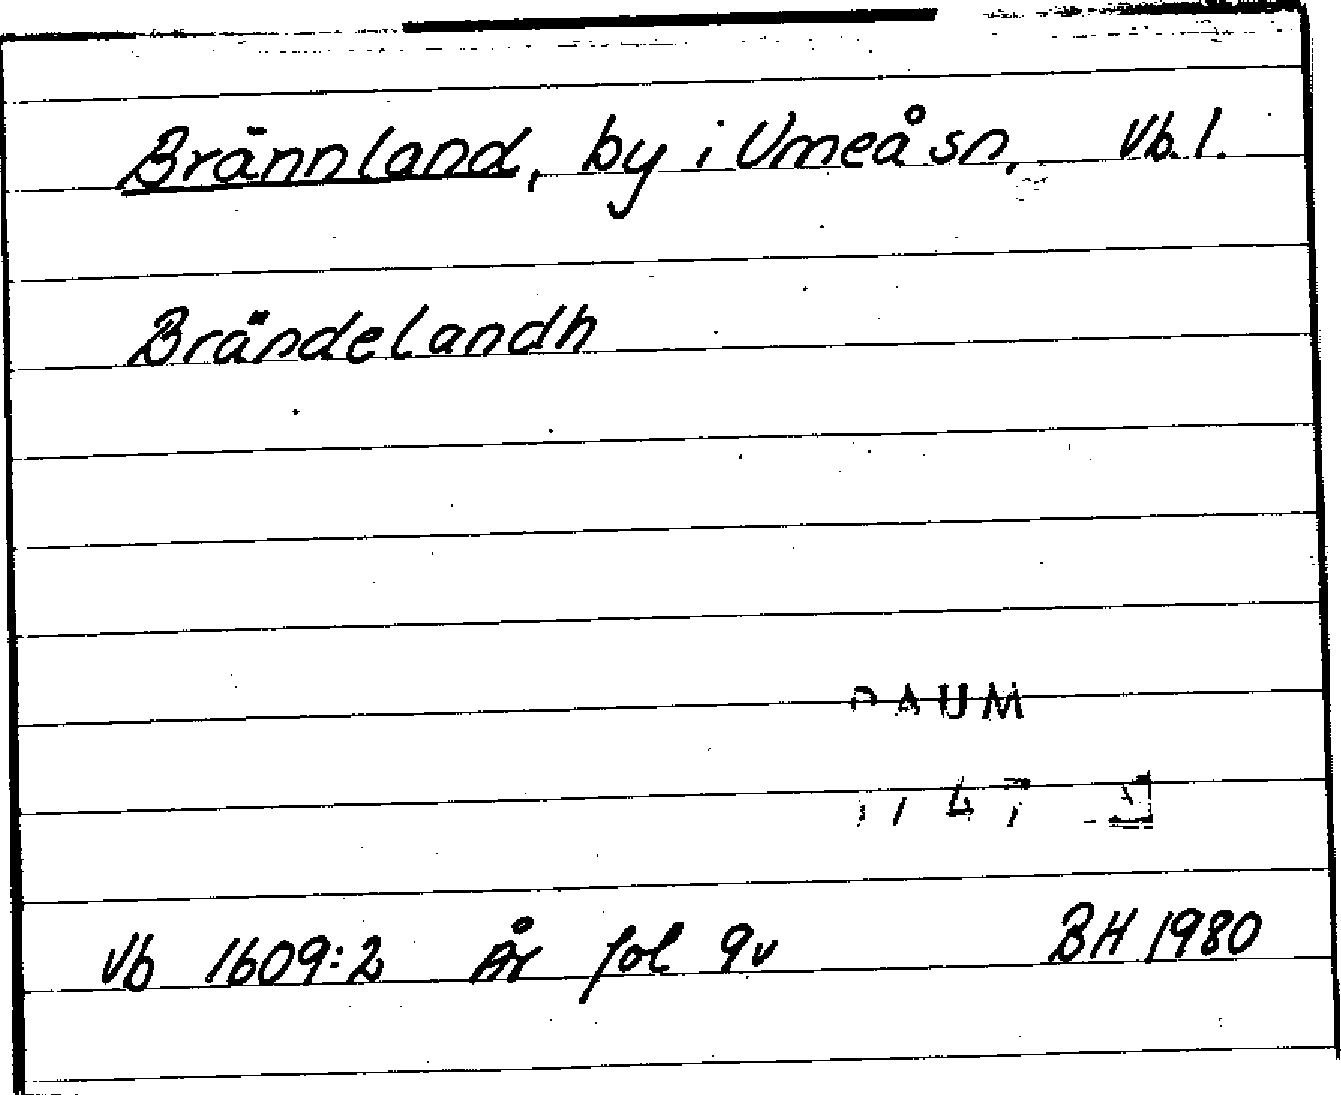 Brännland, by i Umeå sn. Vb. l.
Brändelandh
DAUM
Vb 1609:2 År fol 9v BH 1980